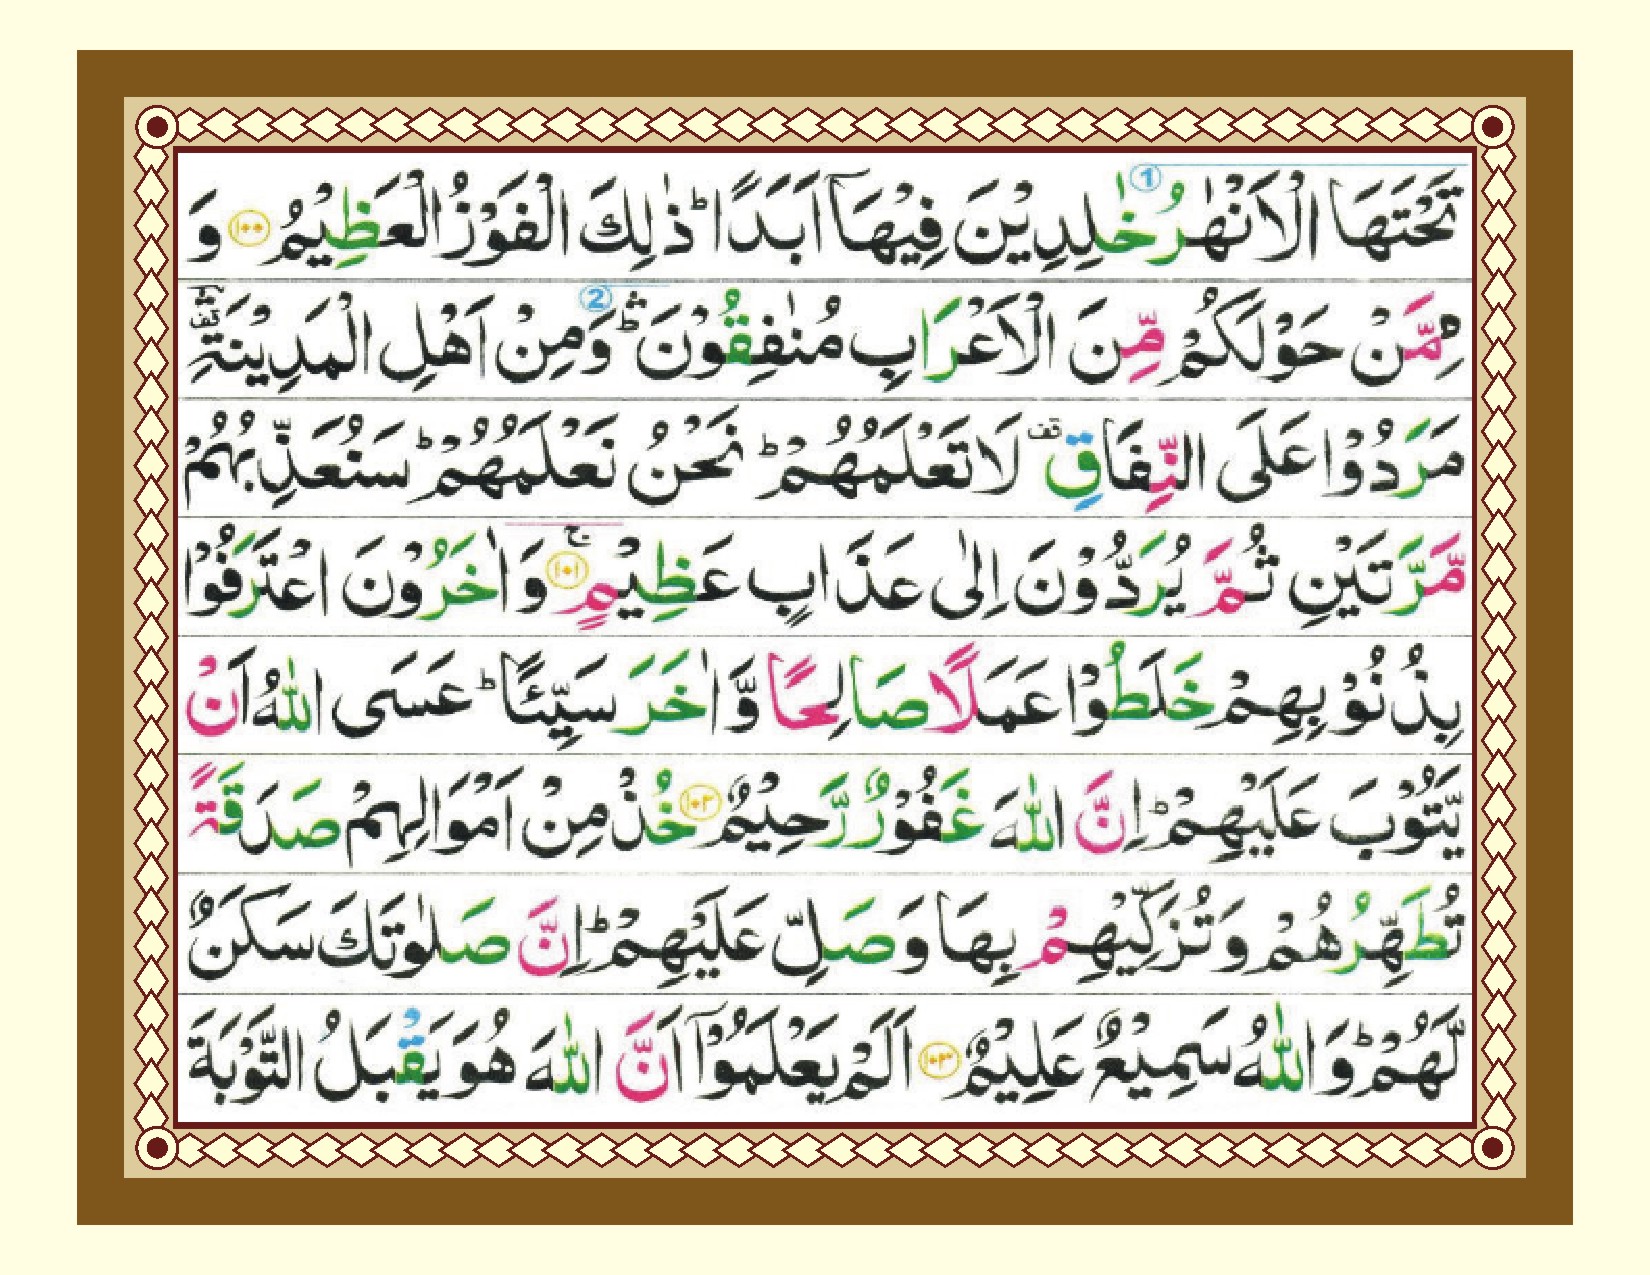 تَحْتَهَا الْاَنْهٰرُ خٰلِدِيْنَ فِيْهَاۤ اَبَدًا ؕ ذٰلِكَ الْفَوْزُ الْعَظِيْمُ ۝۱۰۰ وَ
مِمَّنْ حَوْلَكُمْ مِّنَ الْاَعْرَابِ مُنٰفِقُوْنَ ؕۛ وَمِنْ اَهْلِ الْمَدِيْنَةِ ؔۛ قف
مَرَدُوْا عَلَى النِّفَاقِ قف لَا تَعْلَمُهُمْ ؕ نَحْنُ نَعْلَمُهُمْ ؕ سَنُعَذِّبُهُمْ
مَّرَّتَيْنِ ثُمَّ يُرَدُّوْنَ اِلٰى عَذَابٍ عَظِيْمٍ ۝۱۰۱ ۚ وَاٰخَرُوْنَ اعْتَرَفُوْا
بِذُنُوْبِهِمْ خَلَطُوْا عَمَلًا صَالِحًا وَّاٰخَرَ سَيِّئًا ؕ عَسَى اللّٰهُ اَنْ
يَّتُوْبَ عَلَيْهِمْ ؕ اِنَّ اللّٰهَ غَفُوْرٌ رَّحِيْمٌ ۝۱۰۲ خُذْ مِنْ اَمْوَالِهِمْ صَدَقَةً
تُطَهِّرُهُمْ وَتُزَكِّيْهِمْ بِهَا وَصَلِّ عَلَيْهِمْ ؕ اِنَّ صَلٰوتَكَ سَكَنٌ
لَّهُمْ ؕ وَاللّٰهُ سَمِيْعٌ عَلِيْمٌ ۝۱۰۳ اَلَمْ يَعْلَمُوْۤا اَنَّ اللّٰهَ هُوَ يَقْبَلُ التَّوْبَةَ